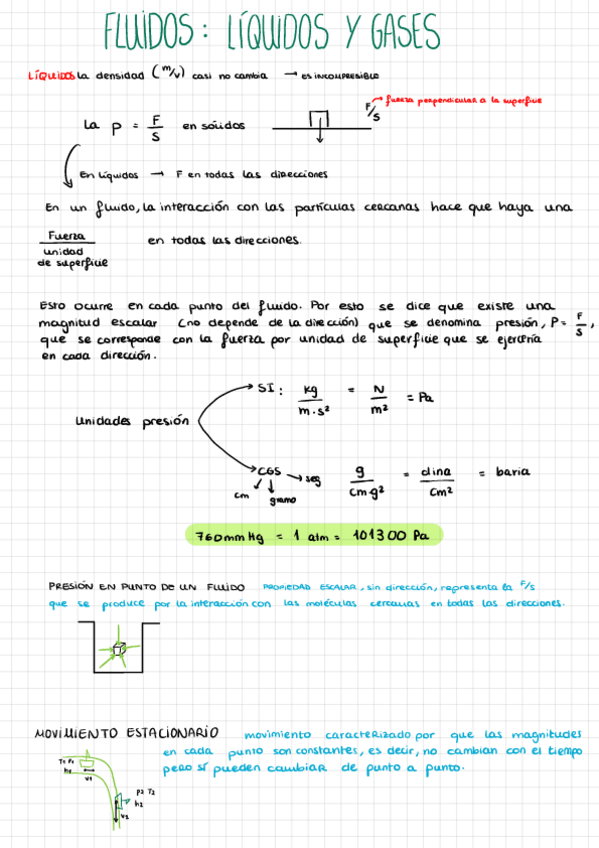 FLUIDOS: LÍQUIDOS Y GASES
LÍQUIDOS La densidad (m/v) casi no cambia → es incompresible
La p = F/S en sólidos
F/S → fuerza perpendicular a la superficie
En líquidos → F en todas las direcciones
En un fluido, la interacción con las partículas cercanas hace que haya una
Fuerza / unidad de superficie en todas las direcciones.
Esto ocurre en cada punto del fluido. Por esto se dice que existe una
magnitud escalar (no depende de la dirección) que se denomina presión, P = F/S,
que se corresponde con la fuerza por unidad de superficie que se ejercería
en cada dirección.
Unidades presión
SI: kg / m·s² = N / m² = Pa
CGS → seg g / cm g² = dina / cm² = baria
cm gramo
760 mm Hg = 1 atm = 101300 Pa
PRESIÓN EN PUNTO DE UN FLUIDO PROPIEDAD ESCALAR, sin dirección, representa la F/S
que se produce por la interacción con las moléculas cercanas en todas las direcciones.
MOVIMIENTO ESTACIONARIO movimiento caracterizado por que las magnitudes
en cada punto son constantes, es decir, no cambian con el tiempo
pero sí pueden cambiar de punto a punto.
T1 P1
h1
v1
P2 T2
h2
v2